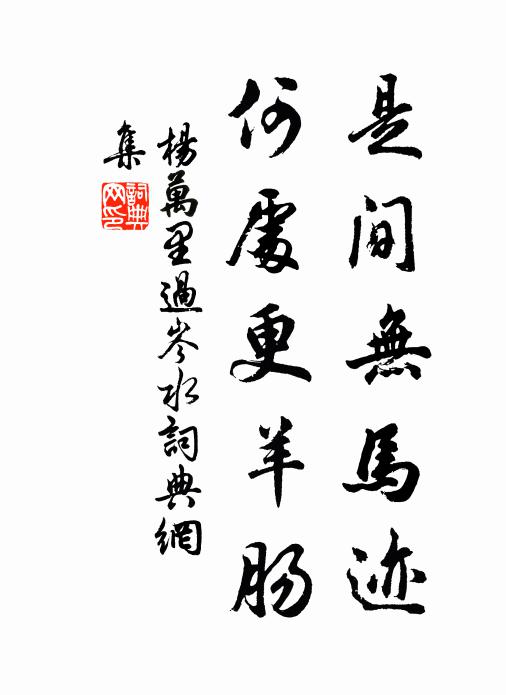 是間無馬迹
何處更羊腸
楊萬里過岑水詞典網
集
詞典
网印